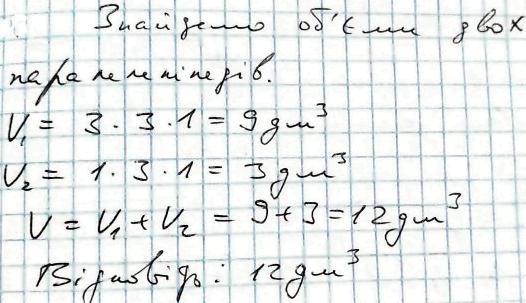 Знайдемо об'єми двох
паралелепіпедів.
V₁ = 3 · 3 · 1 = 9 дм³
V₂ = 1 · 3 · 1 = 3 дм³
V = V₁ + V₂ = 9 + 3 = 12 дм³
Відповідь: 12 дм³